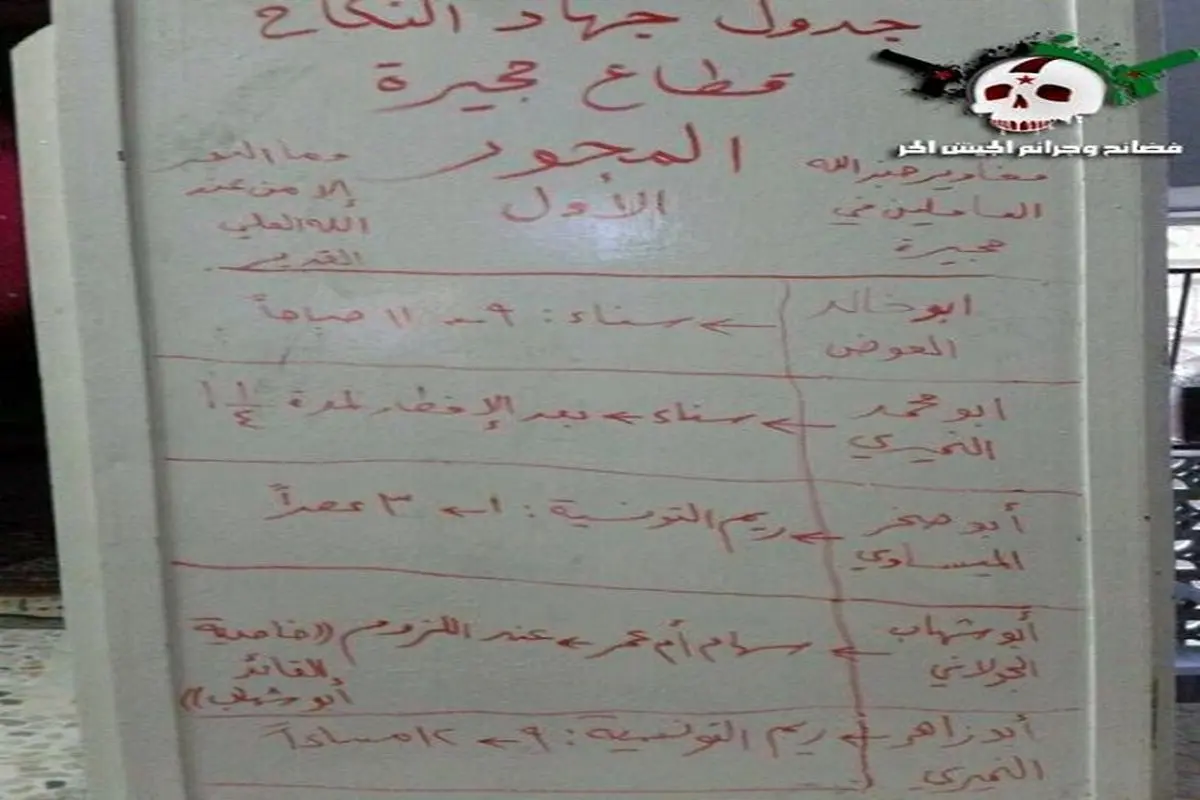 جدول جهاد النكاح
قطاع حجيرة
المحور
الأول
فضائح وجرائم الجيش الحر
مغاوير حزب الله
العاملين في
حجيرة
وما النصر
إلا من عند
الله العلي
القدير
ابو خالد
العوض
← سناء : ٩ ← ١١ صباحاً
ابو محمد
النميري
← سناء ← بعد الإفطار لمدة ١/٤ ١
أبو صخر
الميساوي
← ريم التونسية : ١ ← ٣ عصراً
أبو شهاب
الجولاني
← سهام أم عمر ← عند اللزوم ((خاصية
القائد
أبو شهاب))
أبو زاهر
النميري
← ريم التونسية : ٩ ← ١٢ مساءاً